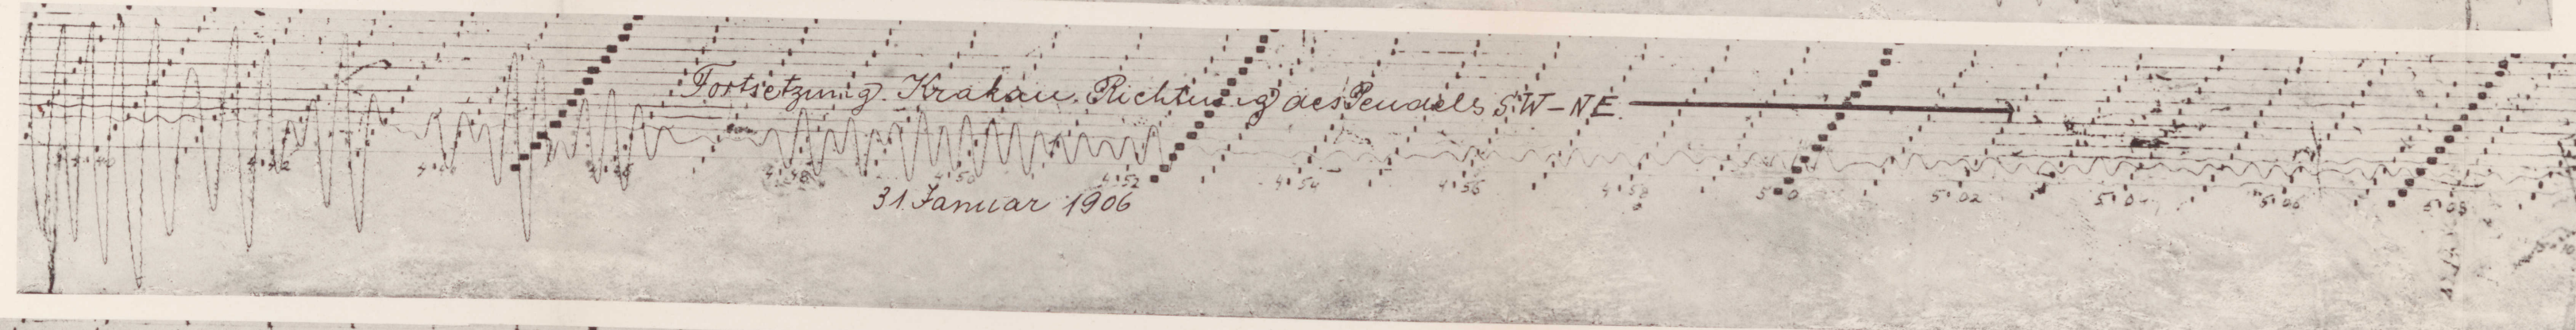 Fortsetzung. Krakau. Richtung des Pendels S.W-NE.
4:42
4:48
4:50
4:52
4:54
4:56
5:02
5:06
5:08
31. Januar 1906